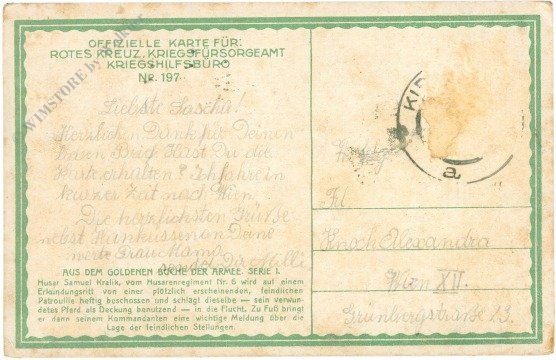 OFFIZIELLE KARTE FÜR:
ROTES KREUZ, KRIEGSFÜRSORGEAMT
KRIEGSHILFSBÜRO
Nr. 197
Liebste Sascha!
Herzlichen Dank für Deinen
lieben Brief. Hast Du die
Karte erhalten? Ich fahre in
kurzer Zeit nach Wien.
Die herzlichsten Grüße
nebst Handküssen an Deine
werte Frau Mama
sendet Dir Milli
AUS DEM GOLDENEN BUCHE DER ARMEE, SERIE I.
Husar Samuel Kralik, vom Husarenregiment Nr. 6 wird auf einem
Erkundungsritt von einer plötzlich erscheinenden, feindlichen
Patrouille heftig beschossen und schlägt dieselbe — sein verwun-
detes Pferd als Deckung benutzend — in die Flucht. Zu Fuß bringt
er dann seinem Kommandanten eine wichtige Meldung über die
Lage der feindlichen Stellungen.
a
Frl.
Knoch Alexandra
Wien XII.
Grünbergstraße